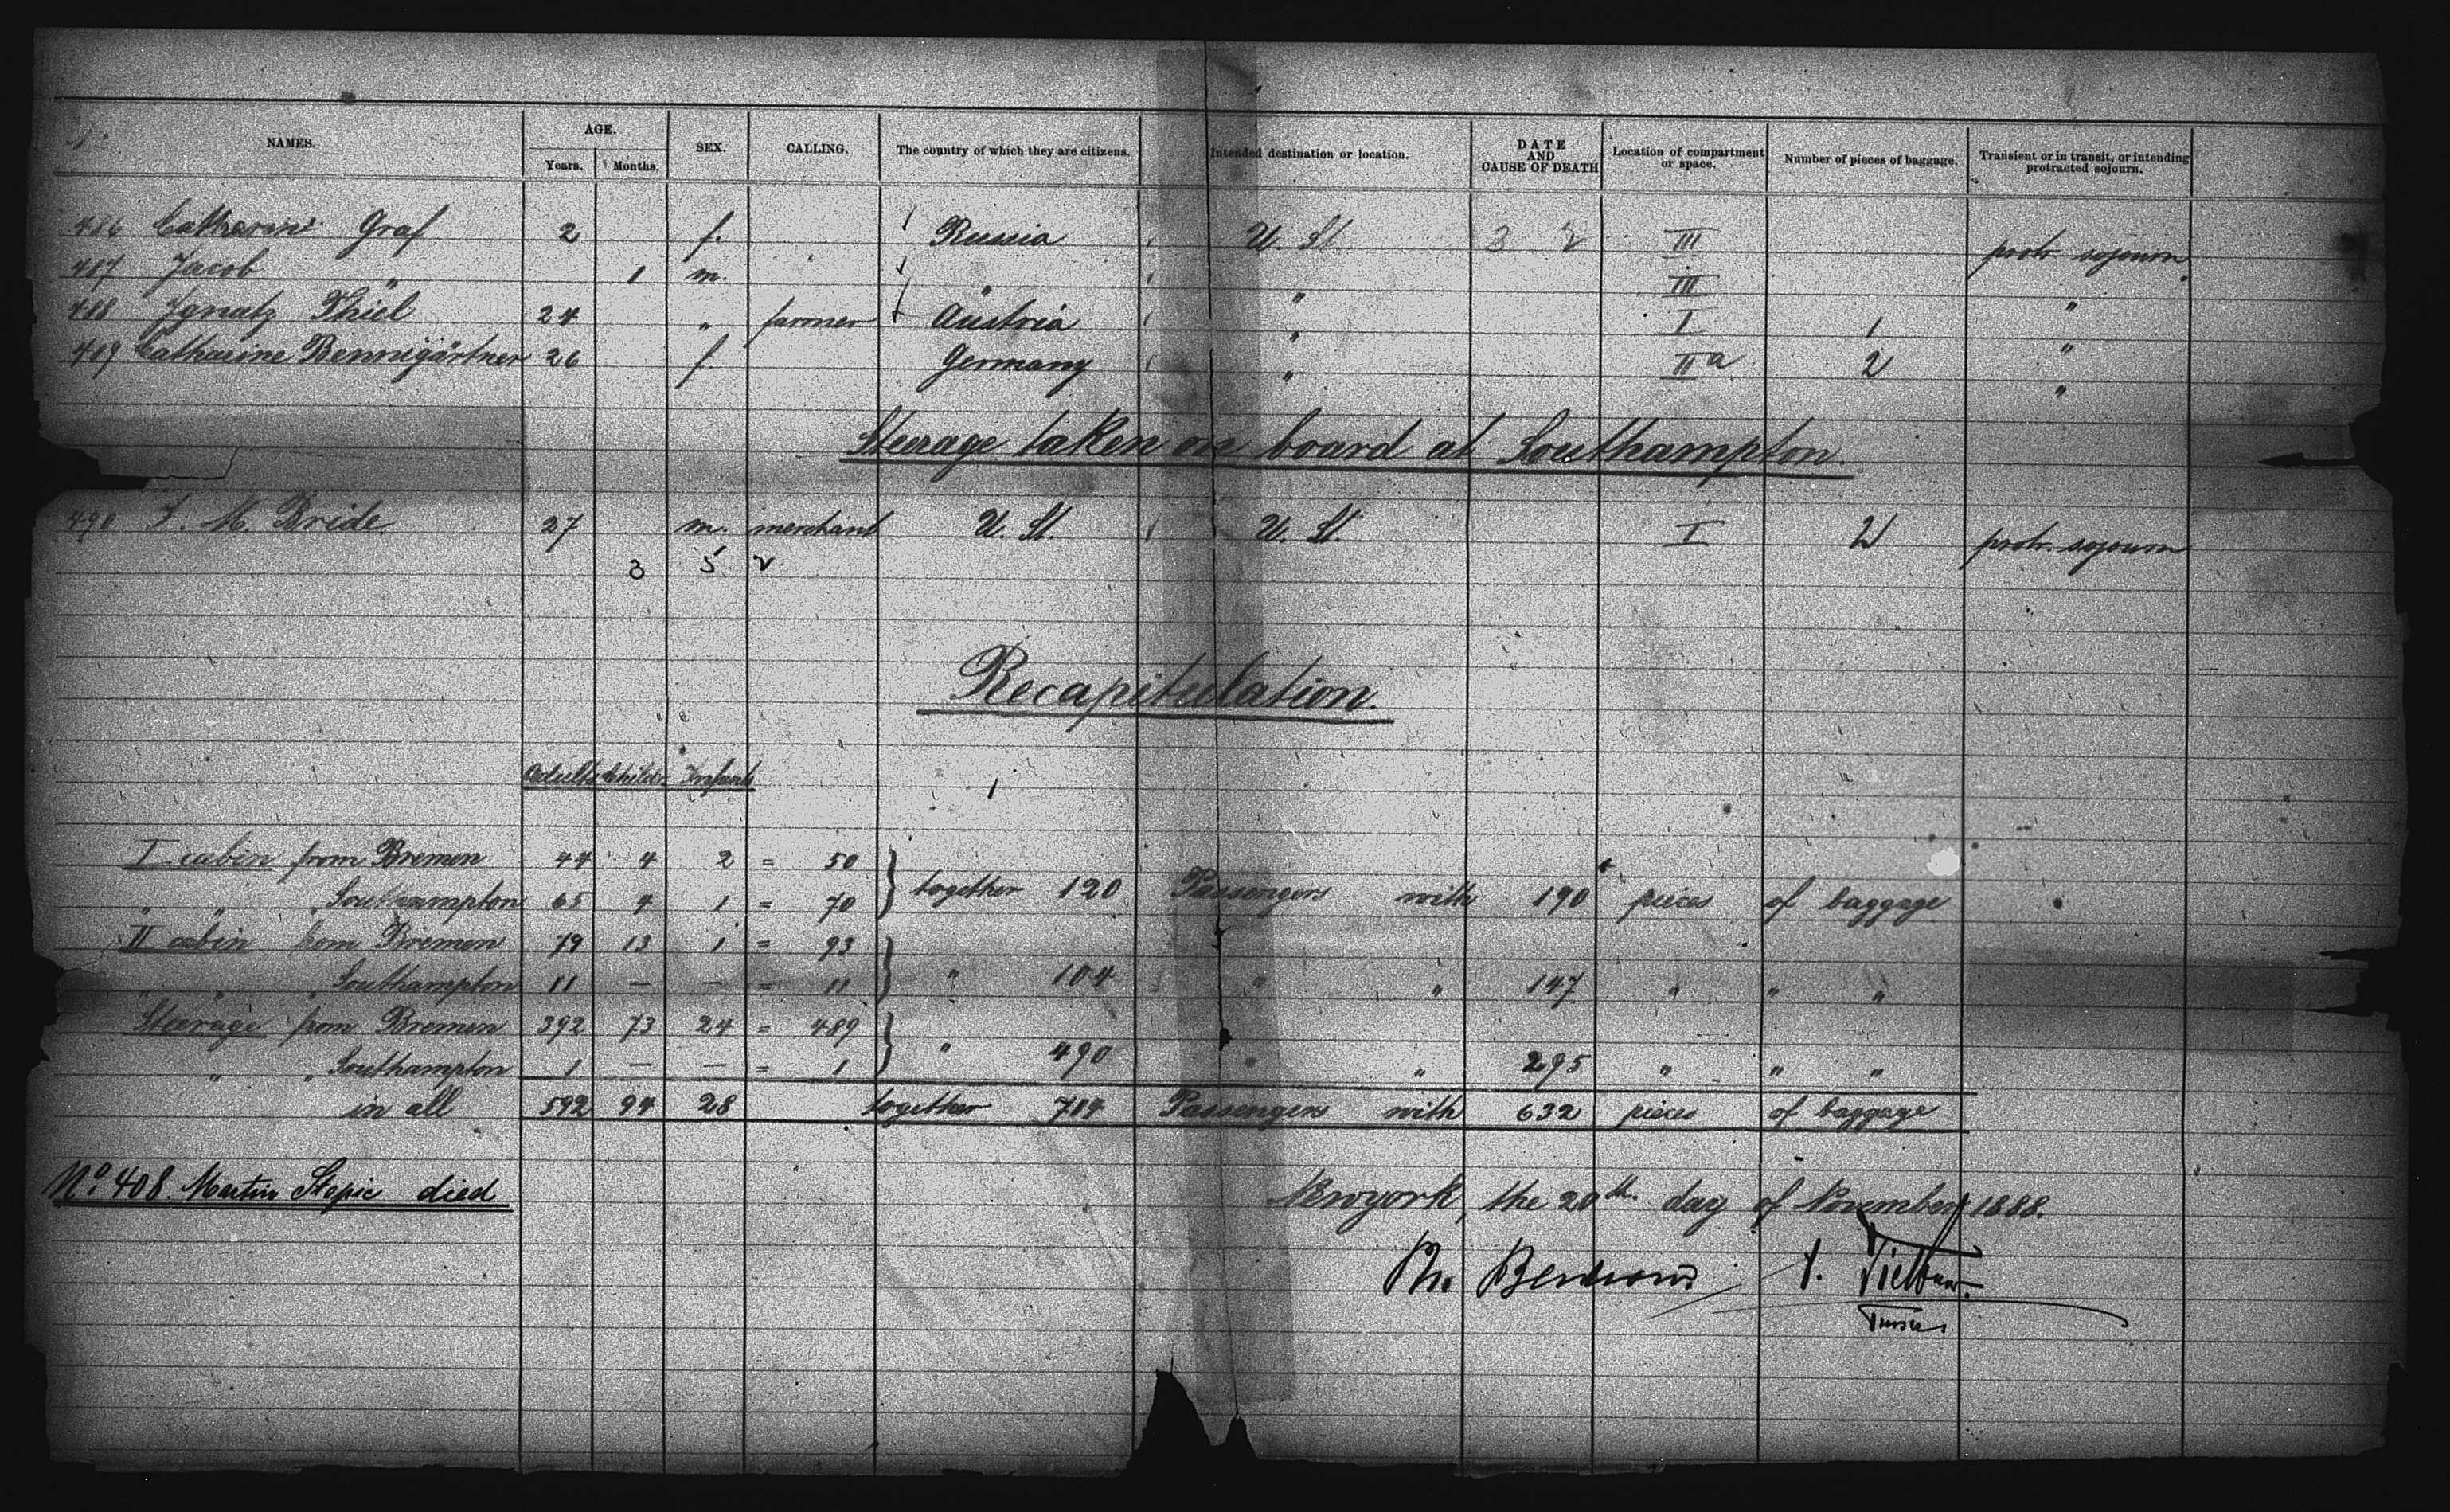 No. NAMES. AGE. Years. Months. SEX. CALLING. The country of which they are citizens. Intended destination or location. DATE AND CAUSE OF DEATH Location of compartment or space. Number of pieces of baggage. Transient or in transit, or intending protracted sojourn.
486 Catharine Graf 2 f. Russia U. St. 3 2 III protr. sojourn
487 Jacob " 1 m. " " III "
488 Ignatz Thiel 24 " farmer Austria " I 1 "
489 Catharine 26 f. Germany " II a 2 "
Steerage taken on board at Southampton.
490 M. Bride 27 m. merchant U. St. U. St. I 2 protr. sojourn
3 5 2
Recapitulation.
Adults Childr. Infants
I cabin from Bremen 44 4 2 = 50
" " " Southampton 65 4 1 = 70 } together 120 Passengers with 190 pieces of baggage
II cabin from Bremen 79 13 1 = 93
" " " Southampton 11 — — = 11 } " 104 " " 147 " " "
Steerage from Bremen 392 73 24 = 489
" " Southampton 1 — — = 1 } " 490 " " 295 " " "
in all 592 94 28 together 714 Passengers with 632 pieces of baggage
No. 408. Martin Stepic died
Newyork, the 20th. day of November 1888.